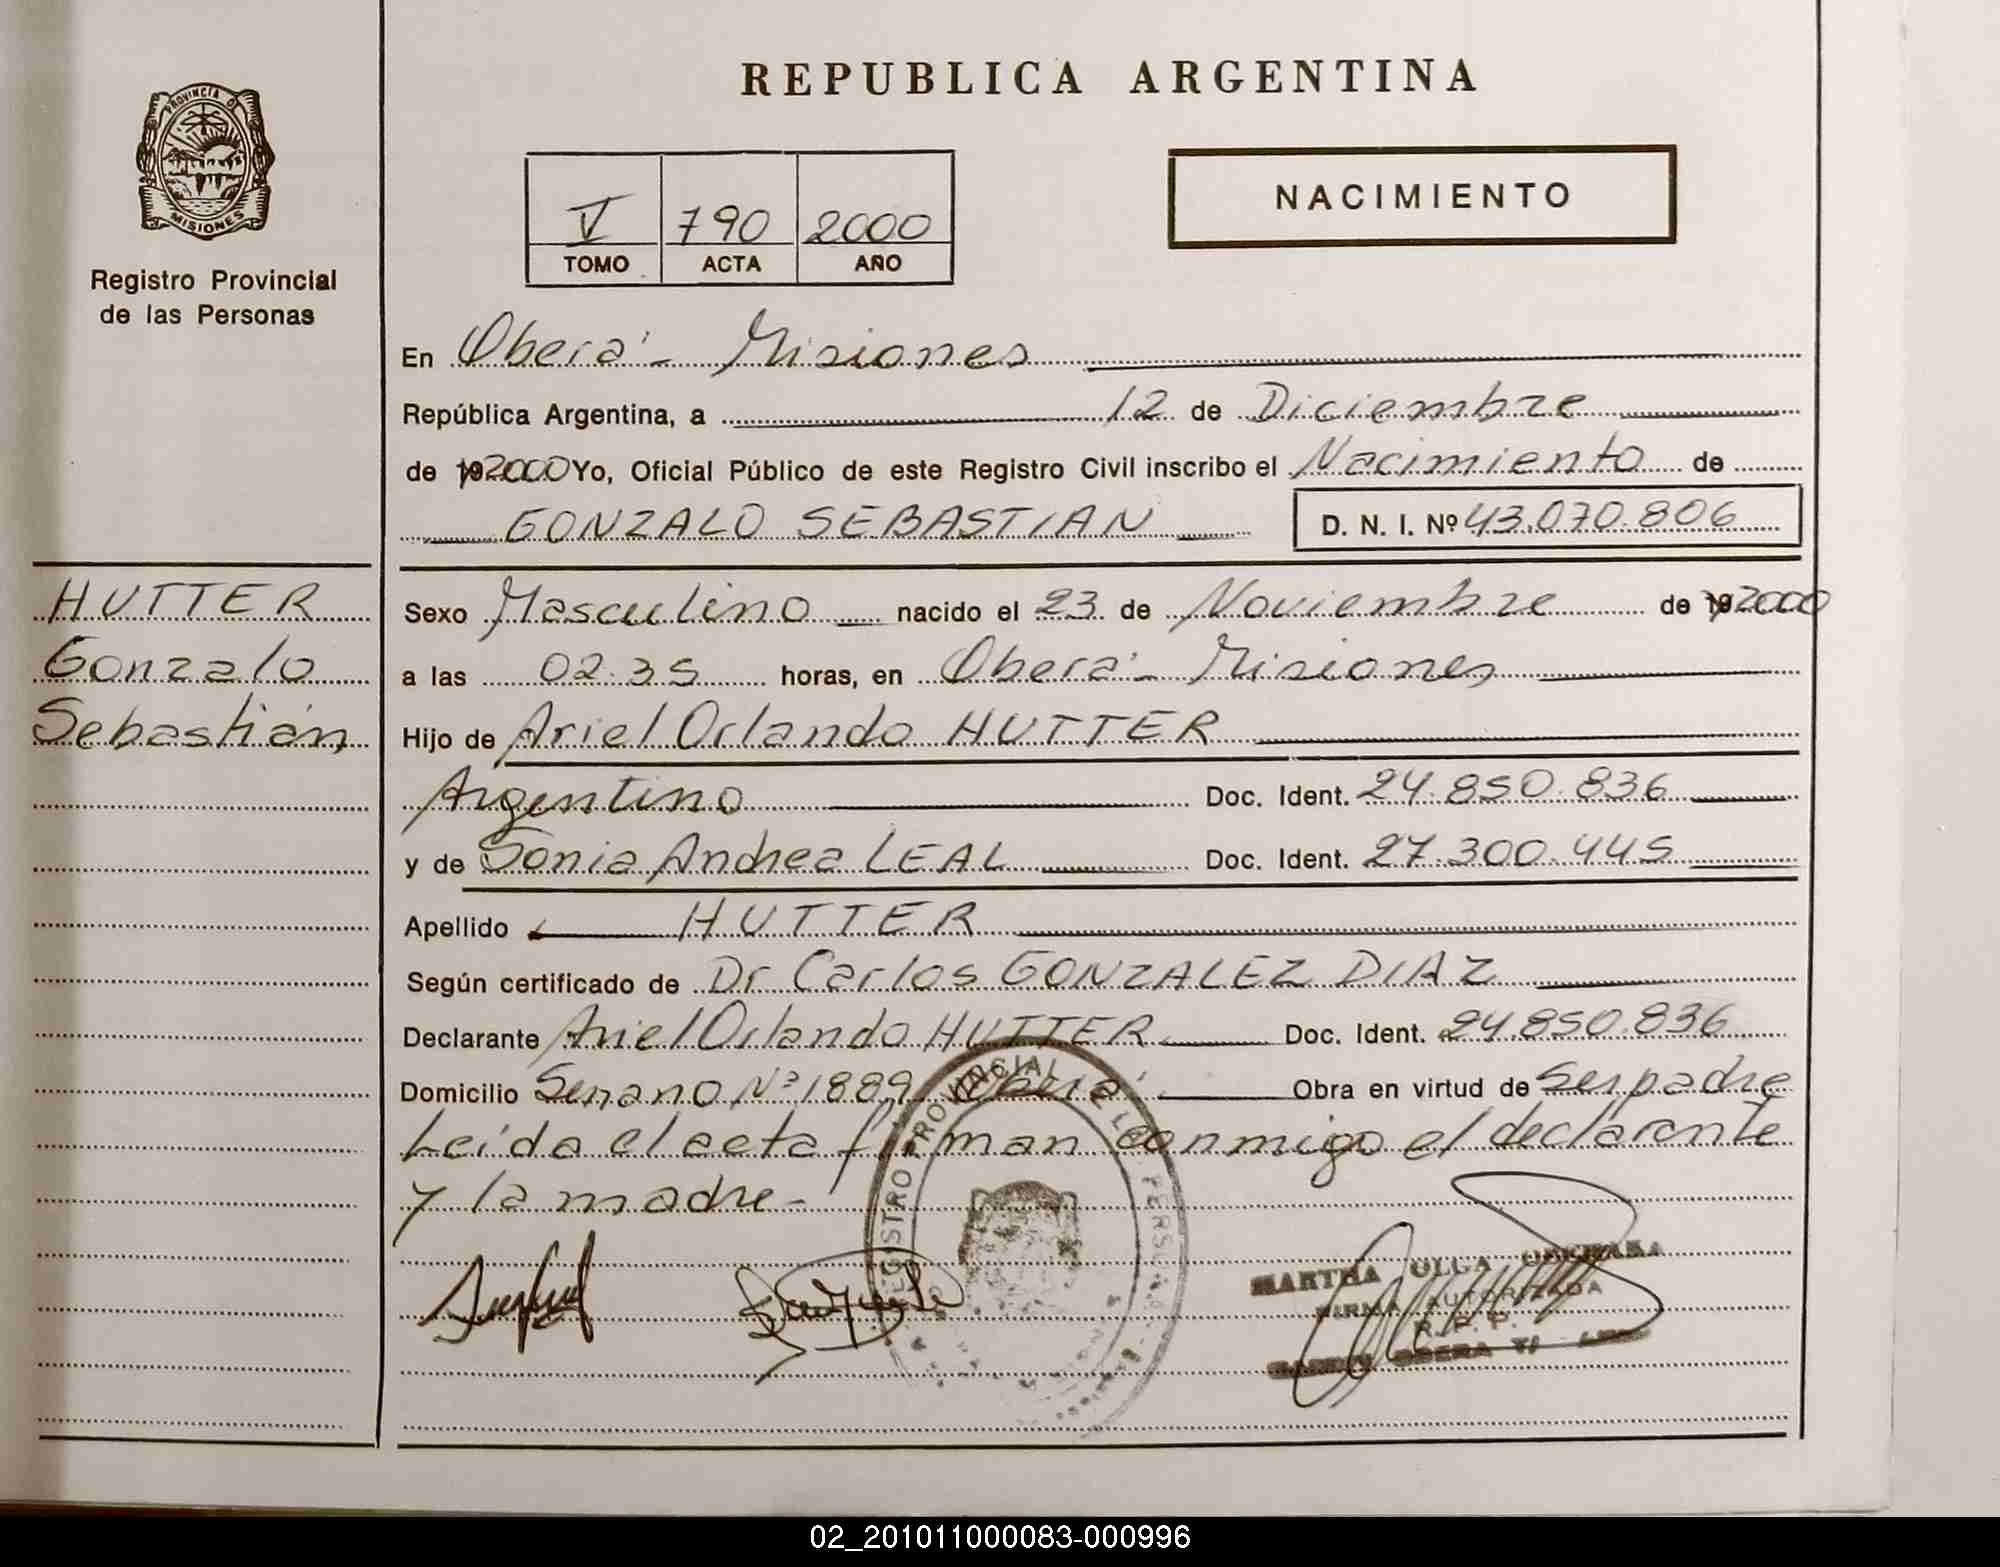 REPUBLICA ARGENTINA
PROVINCIA D
MISIONES
Registro Provincial
de las Personas
NACIMIENTO
V 790 2000
TOMO ACTA AÑO
En Oberá - Misiones
República Argentina, a 12 de Diciembre
de 192000 Yo, Oficial Público de este Registro Civil inscribo el Nacimiento de
GONZALO SEBASTIAN D. N. I. Nº 43.070.806
HUTTER
Gonzalo
Sebastián
Sexo Masculino nacido el 23 de Noviembre de 192000
a las 02.35 horas, en Oberá - Misiones
Hijo de Ariel Orlando HUTTER
Argentino Doc. Ident. 24.850.836
y de Sonia Andrea LEAL Doc. Ident. 27.300.445
Apellido HUTTER
Según certificado de Dr Carlos GONZALEZ DIAZ
Declarante Ariel Orlando HUTTER Doc. Ident. 24.850.836
Domicilio Serrano Nº 1889 Oberá Obra en virtud de Ser padre
Leída el acta firman conmigo el declarante
y la madre -
REGISTRO PROVINCIAL DE LAS PERSONAS
MARTHA OLGA
FIRMA AUTORIZADA
R. P. P.
OBERA
02_201011000083-000996